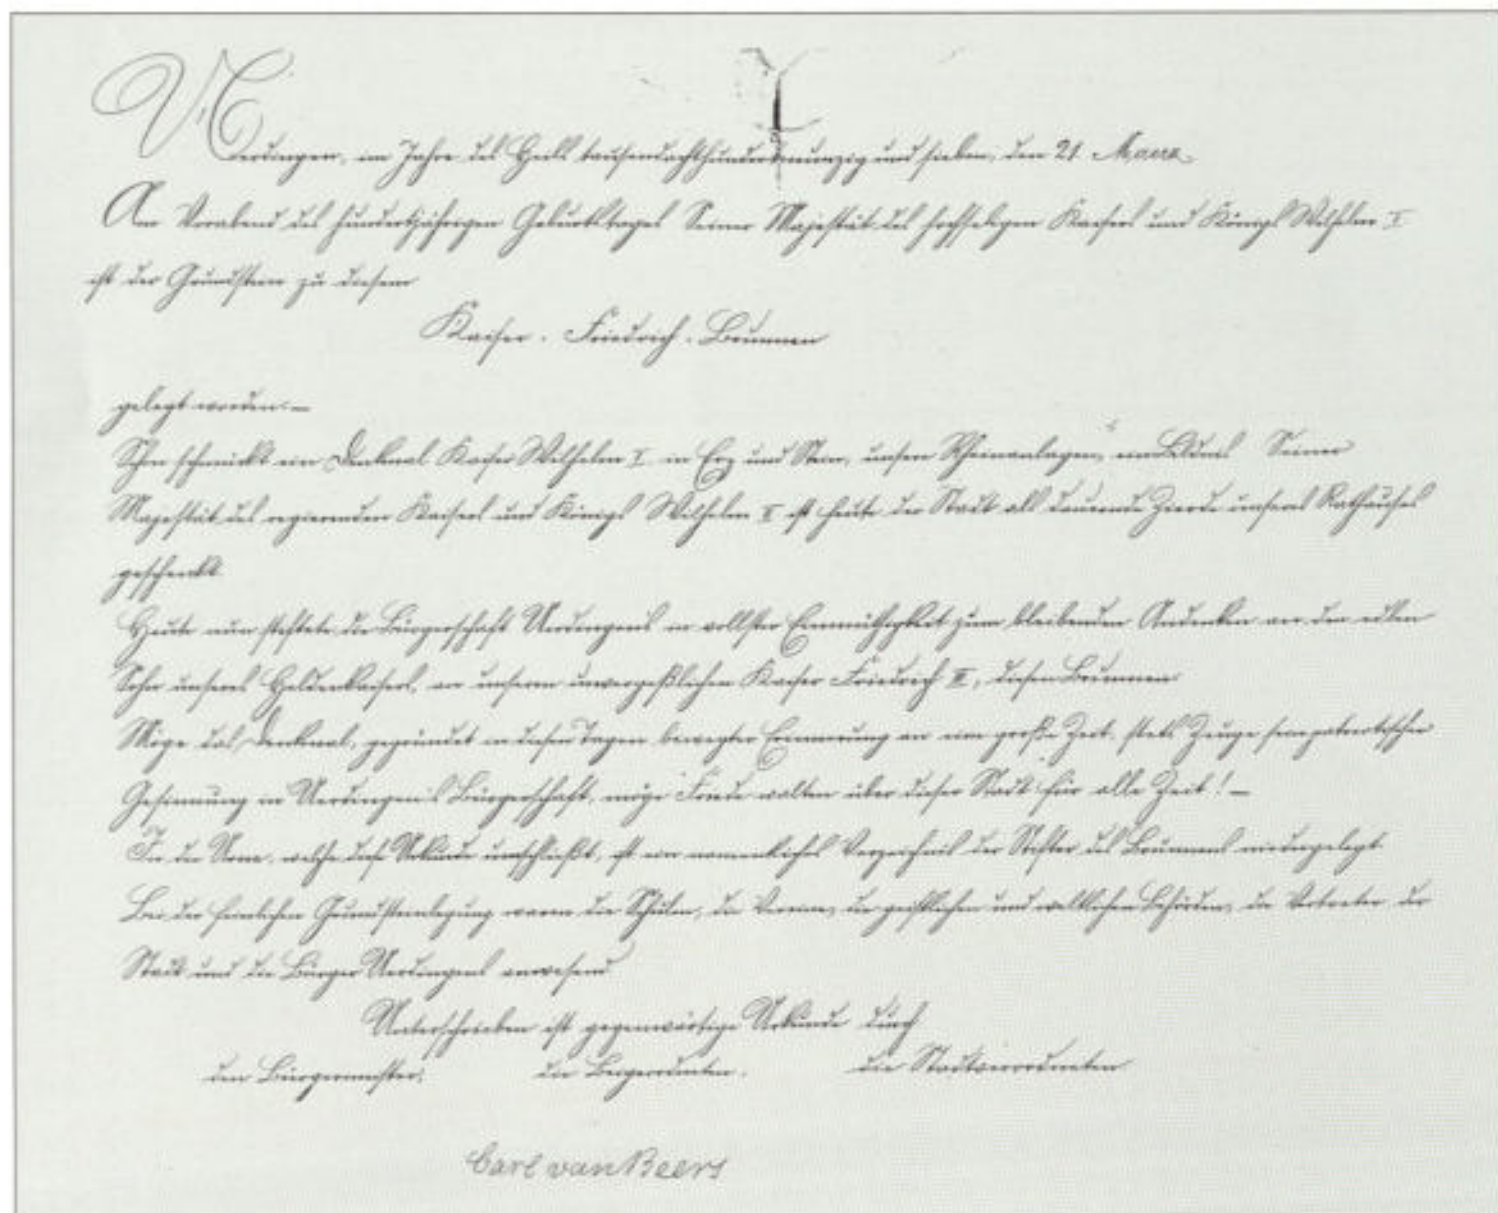 Uerdingen, im Jahre des Heils tausendachthundertneunzig und sieben, den 21. Maerz.
Am Vorabend des hundertjährigen Geburtstages Seiner Majestät des hochseligen Kaisers und Königs Wilhelm I
ist der Grundstein zu diesem
Kaiser-Friedrich-Brunnen
gelegt worden.—
Schon schmückt ein Denkmal Kaiser Wilhelm I. in Erz und Stein, unsere Rheinanlagen, ein Bildnis Seiner
Majestät des regierenden Kaisers und Königs Wilhelm II ist heute der Stadt als dauernde Zierde unseres Rathauses
geschenkt
Heute nun stiftete die Bürgerschaft Uerdingens in vollster Einmüthigkeit zum bleibenden Andenken an den edlen
Sohn unseres Heldenkaisers, an unseren unvergeßlichen Kaiser Friedrich III, diesen Brunnen
Möge das Denkmal, gegründet in diesen Tagen bewegter Erinnerung an eine große Zeit, stets Zeuge sein patriotischer
Gesinnung in Uerdingen's Bürgerschaft, möge Friede walten über dieser Stadt für alle Zeit!—
In der Urne, welche diese Urkunde umschließt, ist ein namentliches Verzeichnis der Stifter des Brunnens niedergelegt.
Bei der feierlichen Grundsteinlegung waren die Schulen, die Vereine, die geistlichen und weltlichen Behörden, die Vertreter der
Stadt und die Bürger Uerdingens anwesend
Unterschrieben ist gegenwärtige Urkunde durch
den Bürgermeister, die Beigeordneten. die Stadtverordneten
Carl van Beers